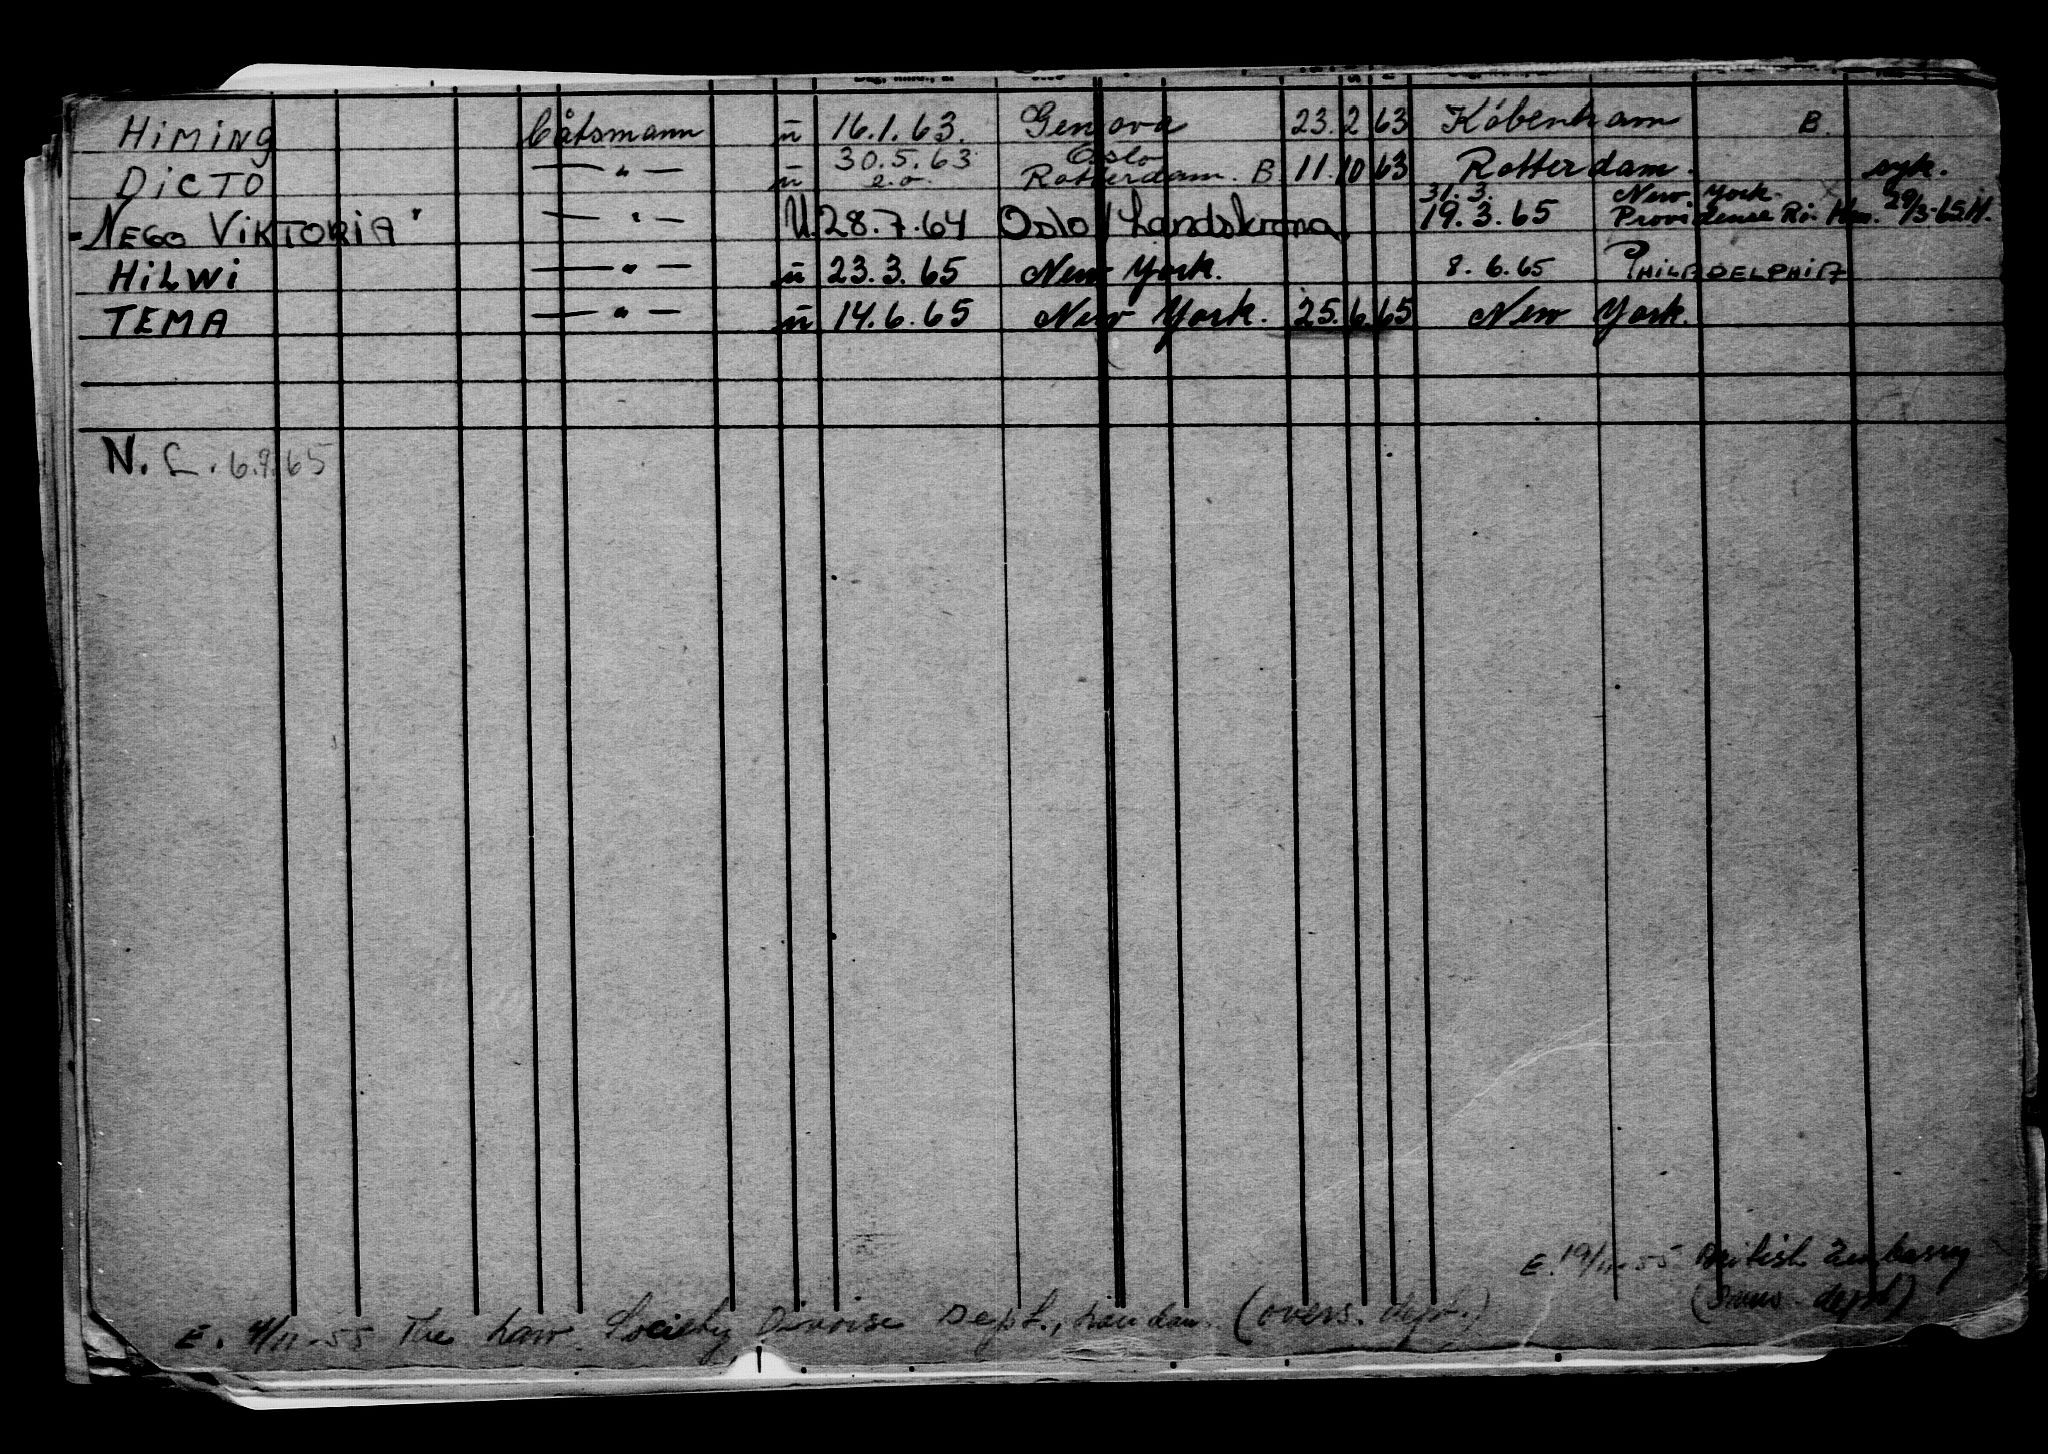 HiMiNg Båtsmann ū 16.1.63. Genova 23. 2 63 København B.
DiCTO — " — ū 30.5.63 e.o. Oslo Rotterdam. B 11. 10 63 Rotterdam. syk.
"NEGO VIKTORIA" — " — U. 28.7.64 Oslo/Landskrona 31.3. 19.3.65 New York. Providense Ri. 29/3-65 H.
HiLWi — " — ū 23.3.65 New York. 8.6.65 PHILADELPHIA
TEMA — " — ū 14.6.65 New York. 25. 6. 65 New York.
N. L. 6.9.65
E. 19/11-55 British Embassy
E. 4/11-55 The Law Society Divorse Dept., London. (overs. dept.)